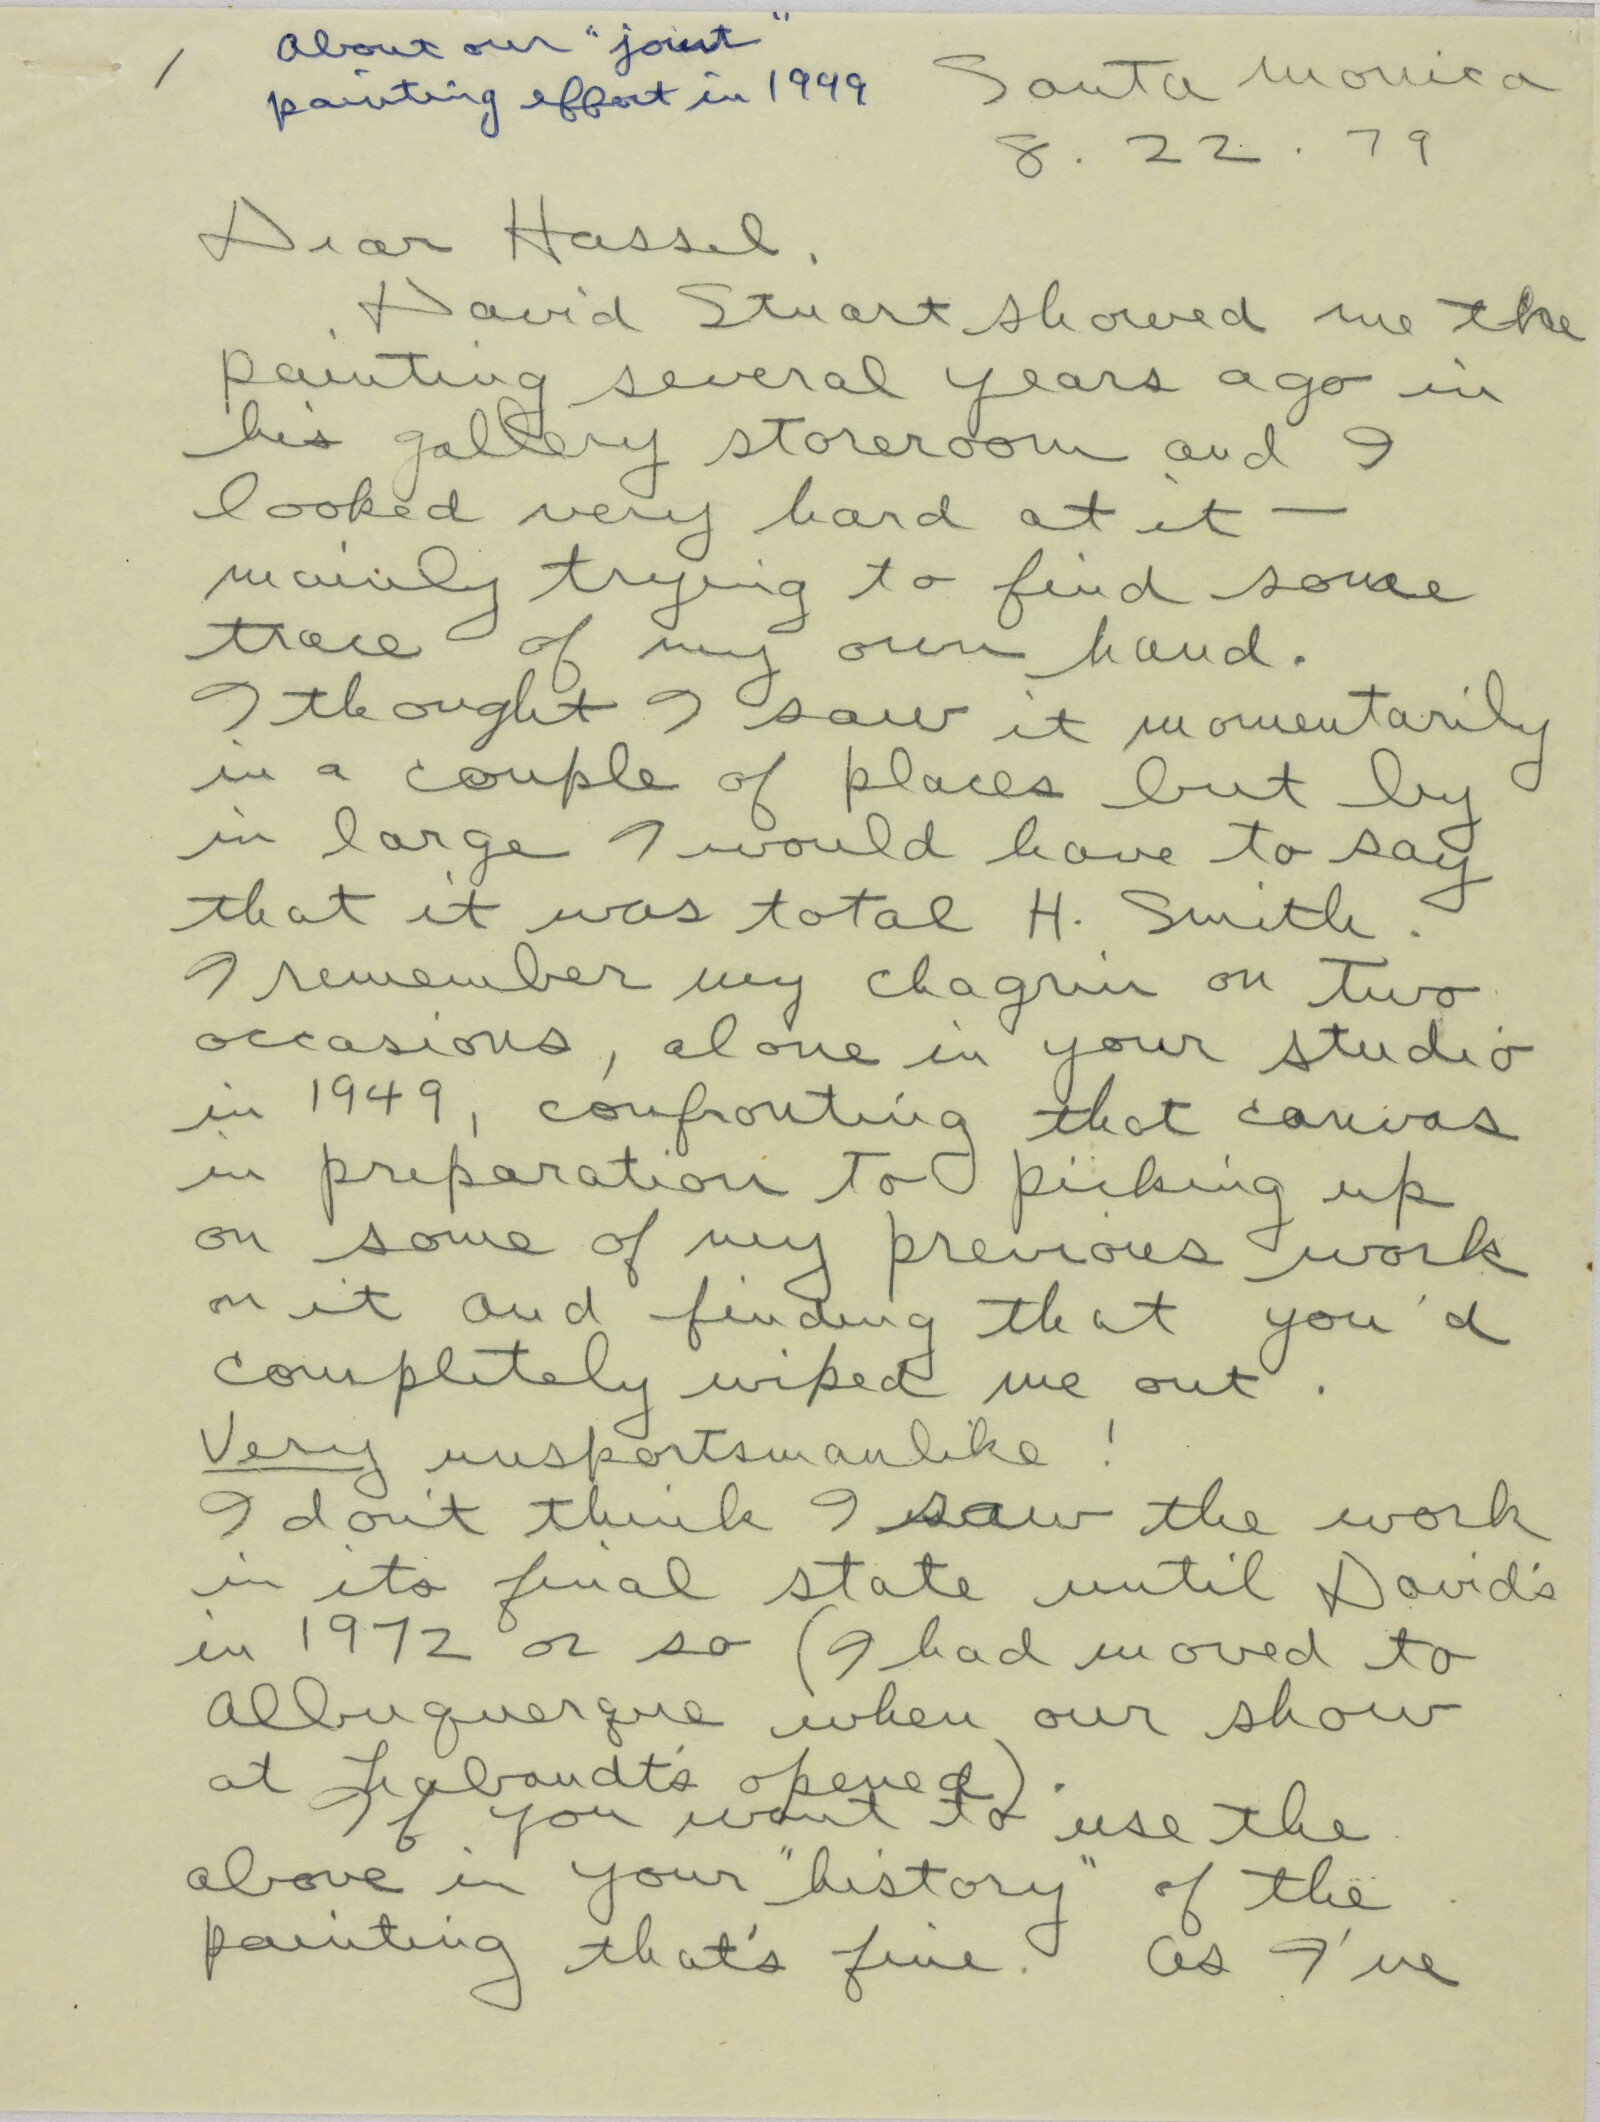 /
About our "joint"
painting effort in 1949
Santa Monica
8. 22. 79
Dear Hassel,
David Stuart showed me the
painting several years ago in
his gallery storeroom and I
looked very hard at it —
mainly trying to find some
trace of my own hand.
I thought I saw it momentarily
in a couple of places but by
in large I would have to say
that it was total H. Smith.
I remember my chagrin on two
occasions, alone in your studio
in 1949, confronting that canvas
in preparation to picking up
on some of my previous work
on it and finding that you'd
completely wiped me out.
Very unsportsmanlike!
I don't think I saw the work
in its final state until David's
in 1972 or so (I had moved to
Albuquerque when our show
at Labaudt's opened).
If you want to use the
above in your "history" of the
painting that's fine. As I've